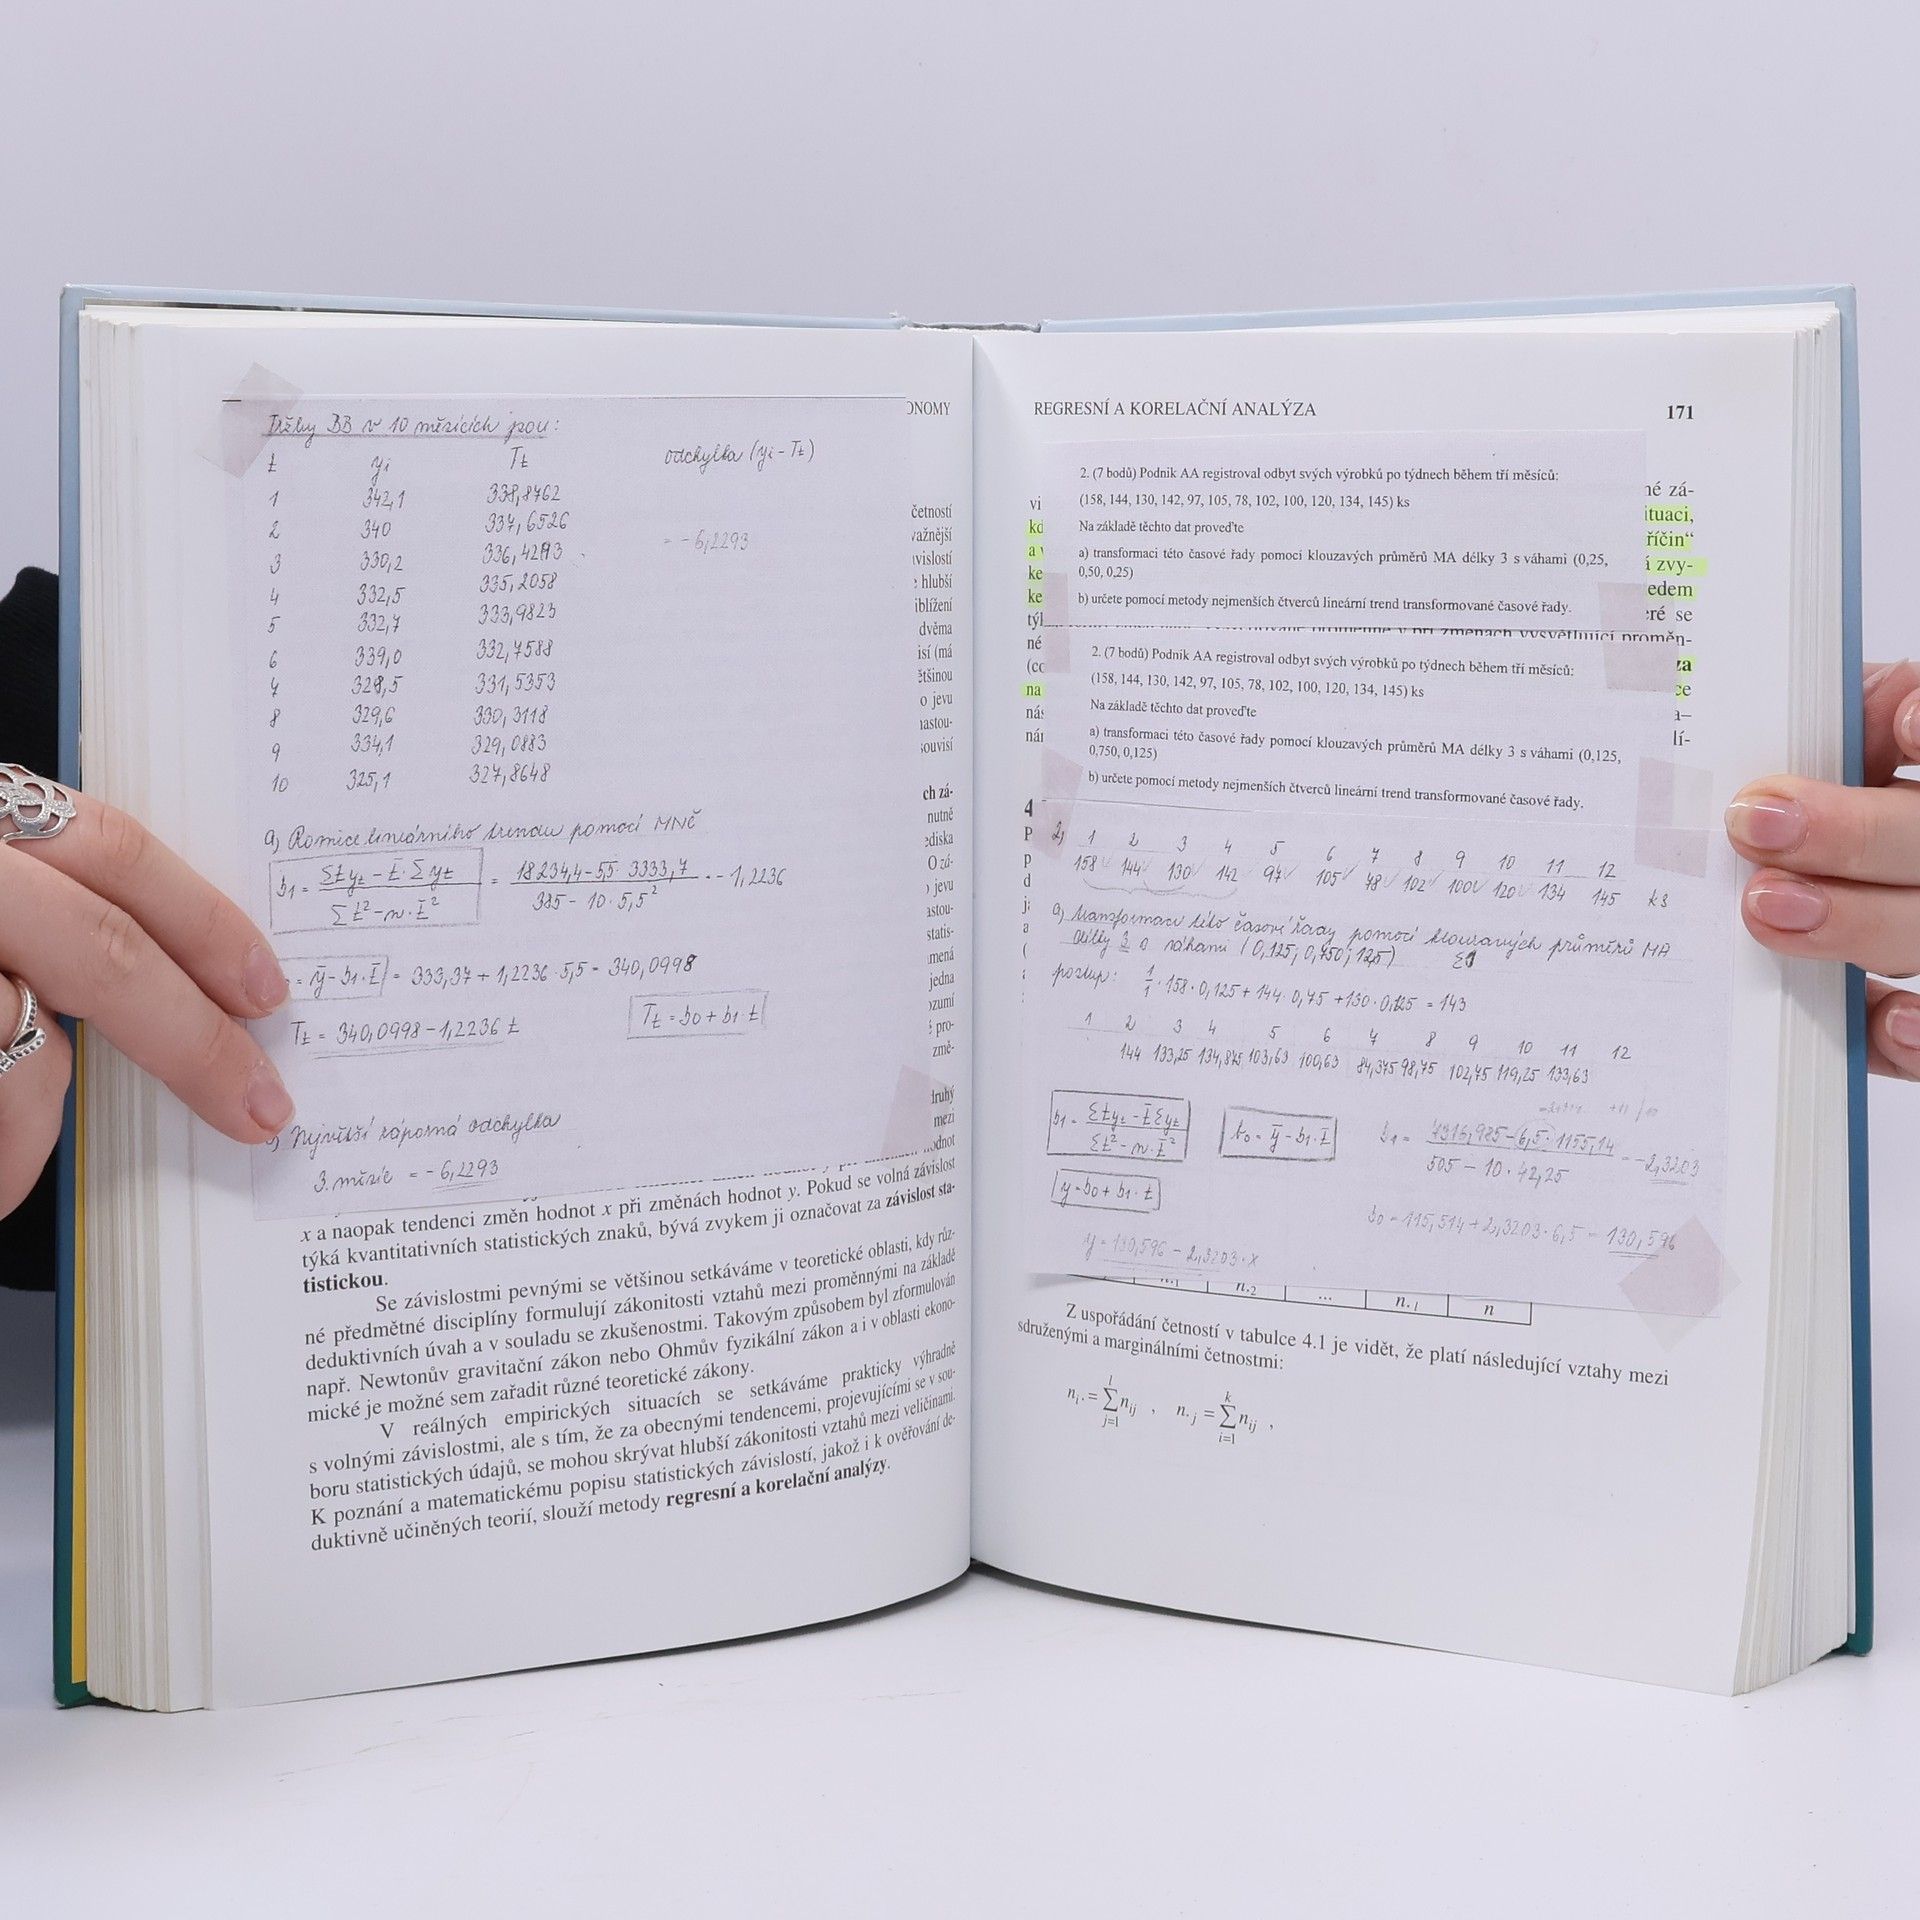 Tržby BB v 10 měsících jsou:
t yi Tt odchylka (yi - Tt)
1 342,1 338,8762
2 340 337,6526 = -6,2293
3 330,2 336,4293
4 332,5 335,2058
5 332,7 333,9823
6 339,0 332,7588
7 328,5 331,5353
8 329,6 330,3118
9 334,1 329,0883
10 325,1 327,8648
a) Rovnice lineárního trendu pomocí MNč
b1 = Σtyt - t̄·Σyt / Σt² - n·t̄² = 18234,4 - 5,5·3333,7 / 385 - 10·5,5² = -1,2236
= ȳ - b1·t̄ = 333,37 + 1,2236·5,5 = 340,0998
Tt = 340,0998 - 1,2236 t
Tt = b0 + b1·t
Největší záporná odchylka
3. měsíc = -6,2293
ONOMY
četností
važnější
ivislostí
hlubší
iblížení
dvěma
isí (má
ětšinou
o jevu
nastou-
souvisí
ch zá-
nutně
ediska
O zá-
jevu
astou-
statis-
mená
jedna
ozumí
pro-
změ-
druhý
mezi
hodnot
x a naopak tendenci změn hodnot x při změnách hodnot y. Pokud se volná závislost
týká kvantitativních statistických znaků, bývá zvykem ji označovat za závislost sta-
tistickou.
Se závislostmi pevnými se většinou setkáváme v teoretické oblasti, kdy růz-
né předmětné disciplíny formulují zákonitosti vztahů mezi proměnnými na základě
deduktivních úvah a v souladu se zkušenostmi. Takovým způsobem byl zformulován
např. Newtonův gravitační zákon nebo Ohmův fyzikální zákon a i v oblasti ekono-
mické je možné sem zařadit různé teoretické zákony.
V reálných empirických situacích se setkáváme prakticky výhradně
s volnými závislostmi, ale s tím, že za obecnými tendencemi, projevujícími se v sou-
boru statistických údajů, se mohou skrývat hlubší zákonitosti vztahů mezi veličinami.
K poznání a matematickému popisu statistických závislostí, jakož i k ověřování de-
duktivně učiněných teorií, slouží metody regresní a korelační analýzy.
REGRESNÍ A KORELAČNÍ ANALÝZA 171
2. (7 bodů) Podnik AA registroval odbyt svých výrobků po týdnech během tří měsíců:
(158, 144, 130, 142, 97, 105, 78, 102, 100, 120, 134, 145) ks
Na základě těchto dat proveďte
a) transformaci této časové řady pomocí klouzavých průměrů MA délky 3 s váhami (0,25,
0,50, 0,25)
b) určete pomocí metody nejmenších čtverců lineární trend transformované časové řady.
né zá-
ituaci,
říčin“
zvy-
edem
eré se
proměnné v při změnách vysvětlující proměn-
2. (7 bodů) Podnik AA registroval odbyt svých výrobků po týdnech během tří měsíců:
(158, 144, 130, 142, 97, 105, 78, 102, 100, 120, 134, 145) ks
Na základě těchto dat proveďte
a) transformaci této časové řady pomocí klouzavých průměrů MA délky 3 s váhami (0,125,
0,750, 0,125)
b) určete pomocí metody nejmenších čtverců lineární trend transformované časové řady.
2, 1 2 3 4 5 6 7 8 9 10 11 12
158 144 130 142 97 105 78 102 100 120 134 145 ks
a) transformaci této časové řady pomocí klouzavých průměrů MA
délky 3 s váhami (0,125; 0,750; 125) Σ1
postup: 1/1·158·0,125 + 144·0,75 + 130·0,125 = 143
1 2 3 4 5 6 7 8 9 10 11 12
144 133,25 134,875 103,63 100,63 84,375 98,75 102,75 119,25 133,63
b1 = Σtyt - t̄Σyt / Σt² - n·t̄²
b0 = ȳ - b1·t̄
b1 = 7316,985 - 6,5·1155,14 / 505 - 10·42,25 = -2,3203
y = b0 + b1·t
b0 = 115,514 + 2,3203·6,5 = 130,596
y = 130,596 - 2,3203·x
n.2 ... n.l n
Z uspořádání četností v tabulce 4.1 je vidět, že platí následující vztahy mezi
sdruženými a marginálními četnostmi:
ni. = Σ nij , n.j = Σ nij ,
j=1 i=1